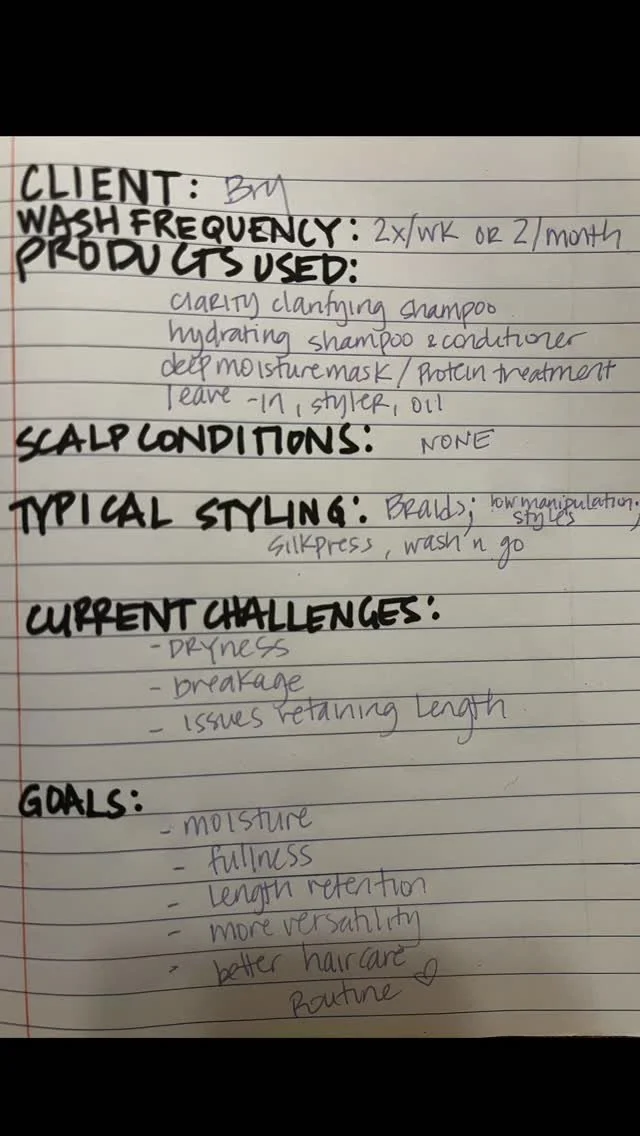 CLIENT: Bry
WASH FREQUENCY: 2x/wk OR 2/month
PRODUCTS USED:
CLARITY clarifying shampoo
hydrating shampoo & conditioner
deep moisture mask / Protein treatment
leave-in, styler, oil
SCALP CONDITIONS: NONE
TYPICAL STYLING: Braids; low manipulation styles,
silkpress, wash n go
CURRENT CHALLENGES:
- DRYness
- breakage
- issues retaining length
GOALS:
- moisture
- fullness
- length retention
- more versatility
- better haircare
Routine ♡